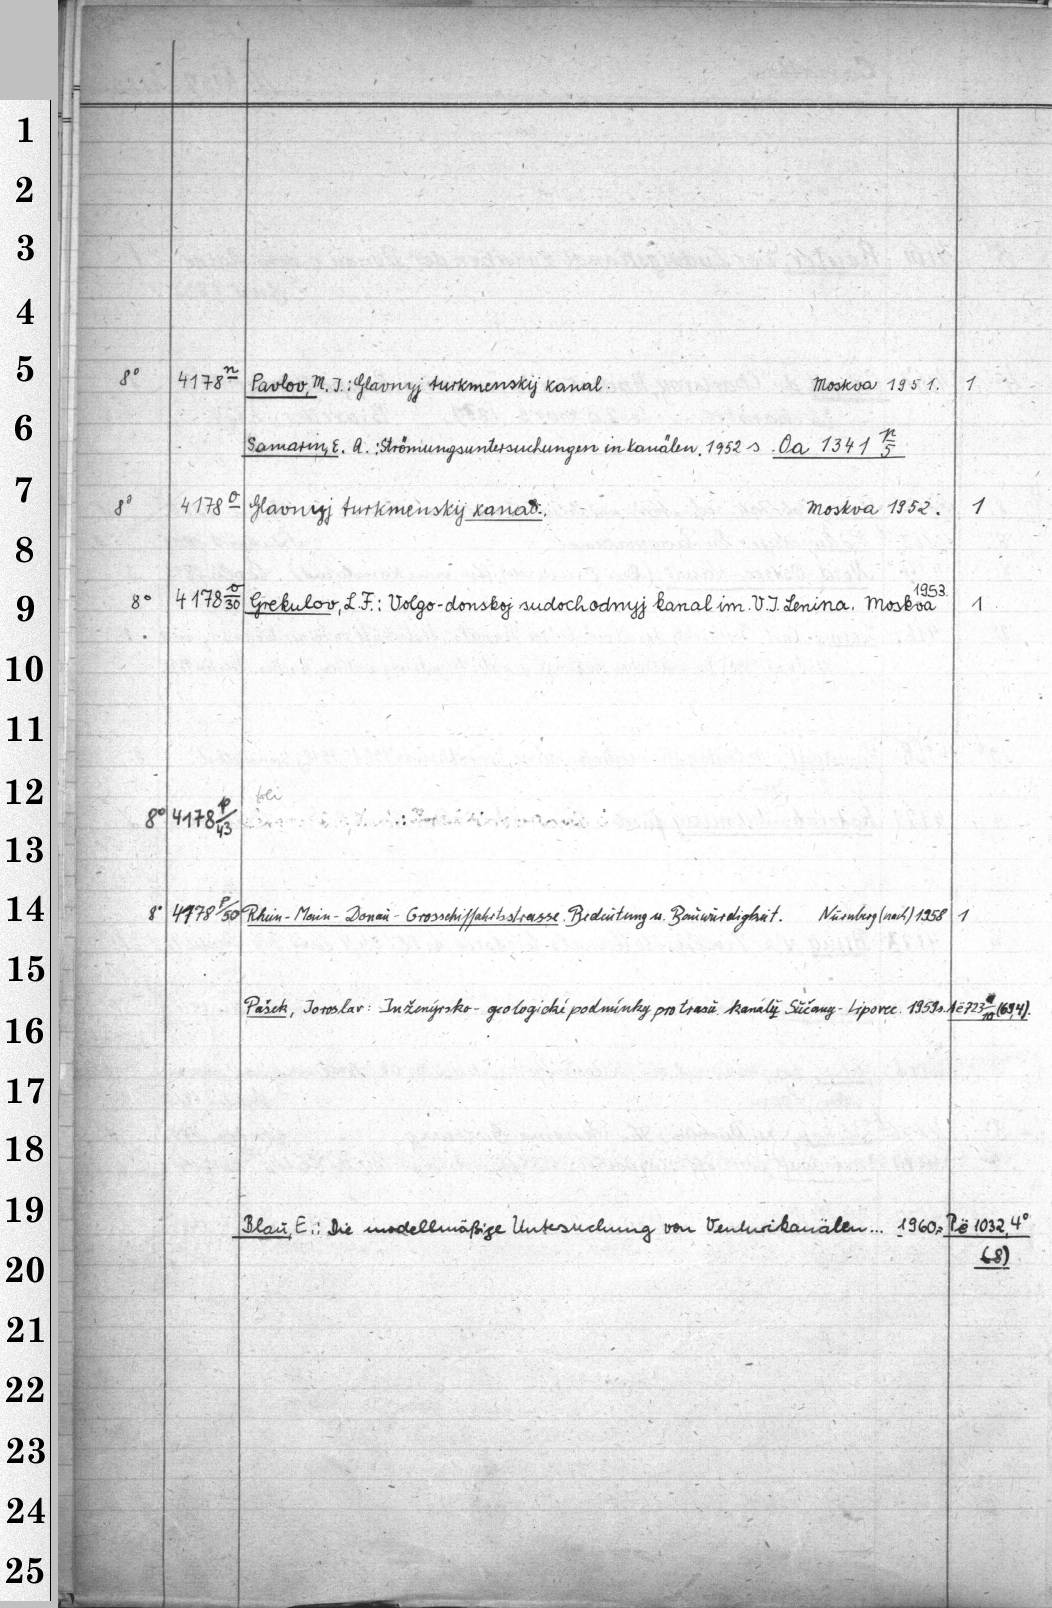 1
2
3
4
5
8° 4178 n Pavlov, M. I.: Glavnyj turkmenskij kanal. Moskva 1951. 1
6
Samarin, E. A.: Strömungsuntersuchungen in Kanälen. 1952 s. Oa 1341 n/5
7
8° 4178 o Glavnyj turkmenskij kanal. Moskva 1952. 1
8
1953.
9
8° 4178 o/30 Grekulov, L.F.: Volgo-donskoj sudochodnyj kanal im. V.I. Lenina. Moskva 1
10
11
12
frei
8° 4178 p/43
13
14
8° 4178 p/50 Rhein-Main-Donau-Grosschiffahrtsstrasse. Bedeutung u. Bauwürdigkeit. Nürnberg (nach) 1958 1
15
Pašek, Jaroslav: Inženýrsko-geologické podmínky pro trasu kanálu Sučany-Lipovec. 1959 s. (69,4).
16
17
18
19
Blau, E.: Die modellmäßige Untersuchung von Venturikanälen... 1960 s. Pë 1032, 4°
(8)
20
21
22
23
24
25